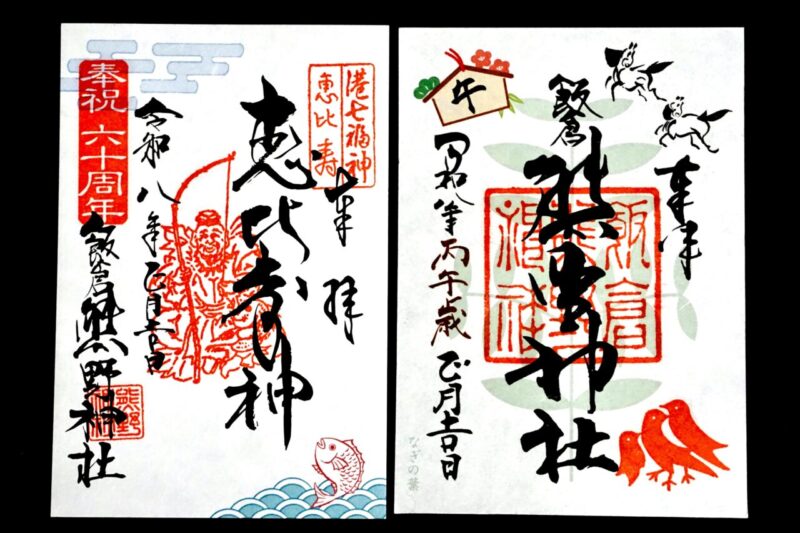 港七福神
恵比寿
奉拝
恵比寿神
令和八年正月吉日
奉祝 六十周年
飯倉熊野神社
奉拝
飯倉
熊野神社
午
令和八年丙午歳正月吉日
なぎの葉